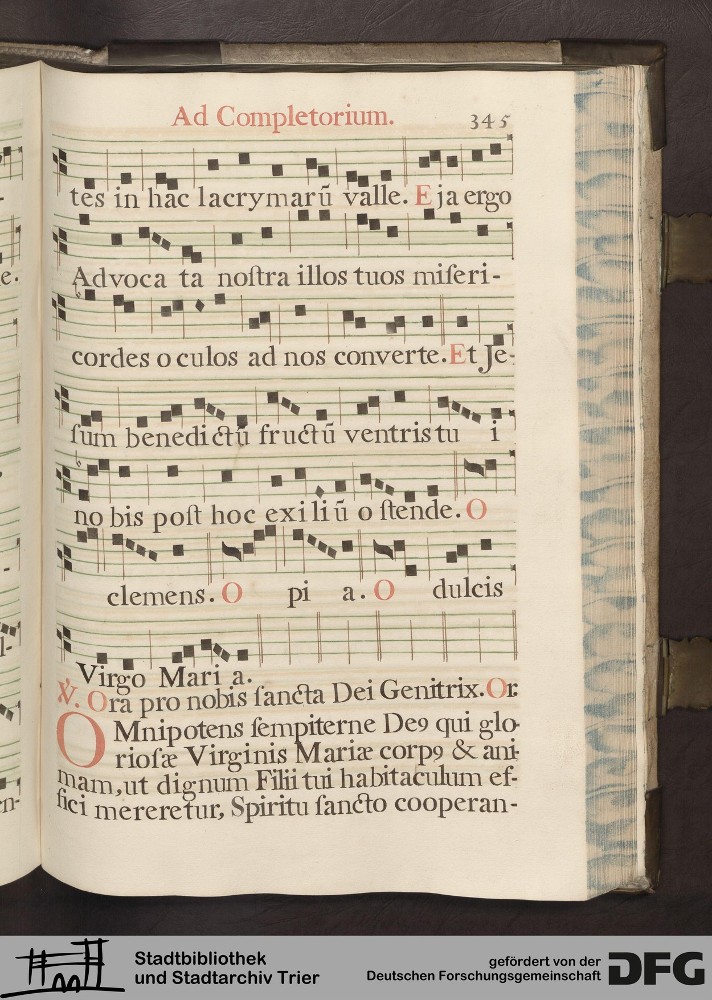 Ad Completorium. 345
tes in hac lacrymarū valle. Eja ergo
Advoca ta noſtra illos tuos miſeri-
cordes oculos ad nos converte. Et Je-
ſum benedictū fructū ventris tu i
no bis poſt hoc exiliū oſtende. O
clemens. O pi a. O dulcis
Virgo Mari a.
℣. Ora pro nobis ſancta Dei Genitrix. Or:
OMnipotens ſempiterne De9 qui glo-
rioſæ Virginis Mariæ corp9 & ani-
mam, ut dignum Filii tui habitaculum ef-
fici mereretur, Spiritu ſancto cooperan-
e.
l-
n-
Stadtbibliothek
und Stadtarchiv Trier
gefördert von der
Deutschen Forschungsgemeinschaft
DFG